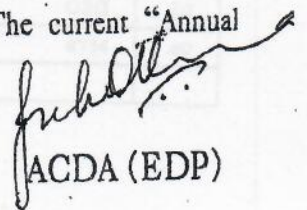 The current “Annual
ACDA (EDP)